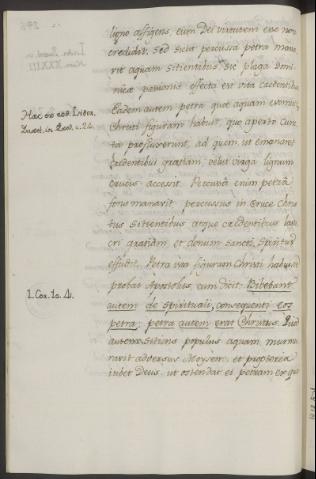 ligno affigens, eum Dei virtutem esse non
credidit, sed sicut percussa petra mana-
vit aquam sitientibus, sic plaga Domi-
nica passionis effecta est vita credentibus
Eadem autem petra quae aquam evomuit,
Christi figuram habuit, quo aperto cunc-
ta profluxerunt, ad quem ut emanaret
credentibus gratiam, velut virga lignum
crucis accessit. Percussa enim petra
fons manavit, percussus in Cruce Chris-
tus sitientibus atque credentibus lava-
cri gratiam et donum Sancti Spiritus
effudit. Petra vero figuram Christi habuisse
probat Apostolus, cum dicit: Bibebant
autem de spirituali, consequenti eos
petra; petra autem erat Christus. Quod
autem sitiens populus aquam murmu-
ravit adversus Moysen, et propterea
iubet Deus, ut ostendat ei petram ex qua
Hac ex
Exod. c. 24.
1. Cor. 10. 4.